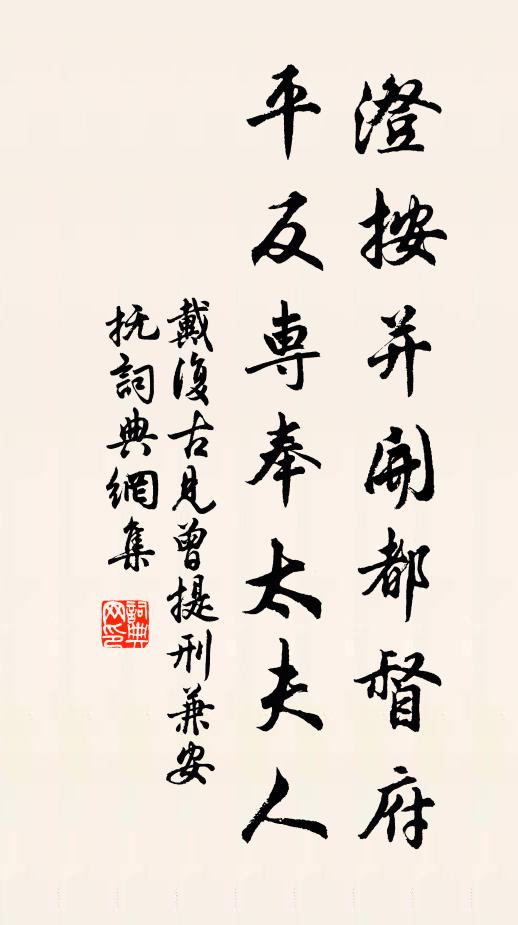 澄按并開都督府
平反専奉太夫人
戴復古見曾提刑兼安
抚詞典網集
詞典网印